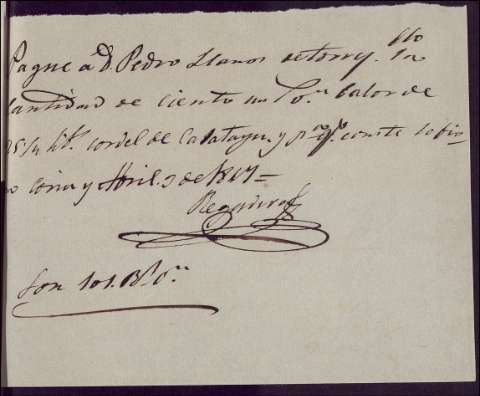 Pague a D. Pedro Llanos de Torry. Gllo la
cantidad de ciento un Rs. on balor de
25 1/4 lbs. cordel de Calatayu. y pa. qe. conste lo fir-
mo Coria y Abril. 9 de 1817=
Regairo
Son 101. Rs. on